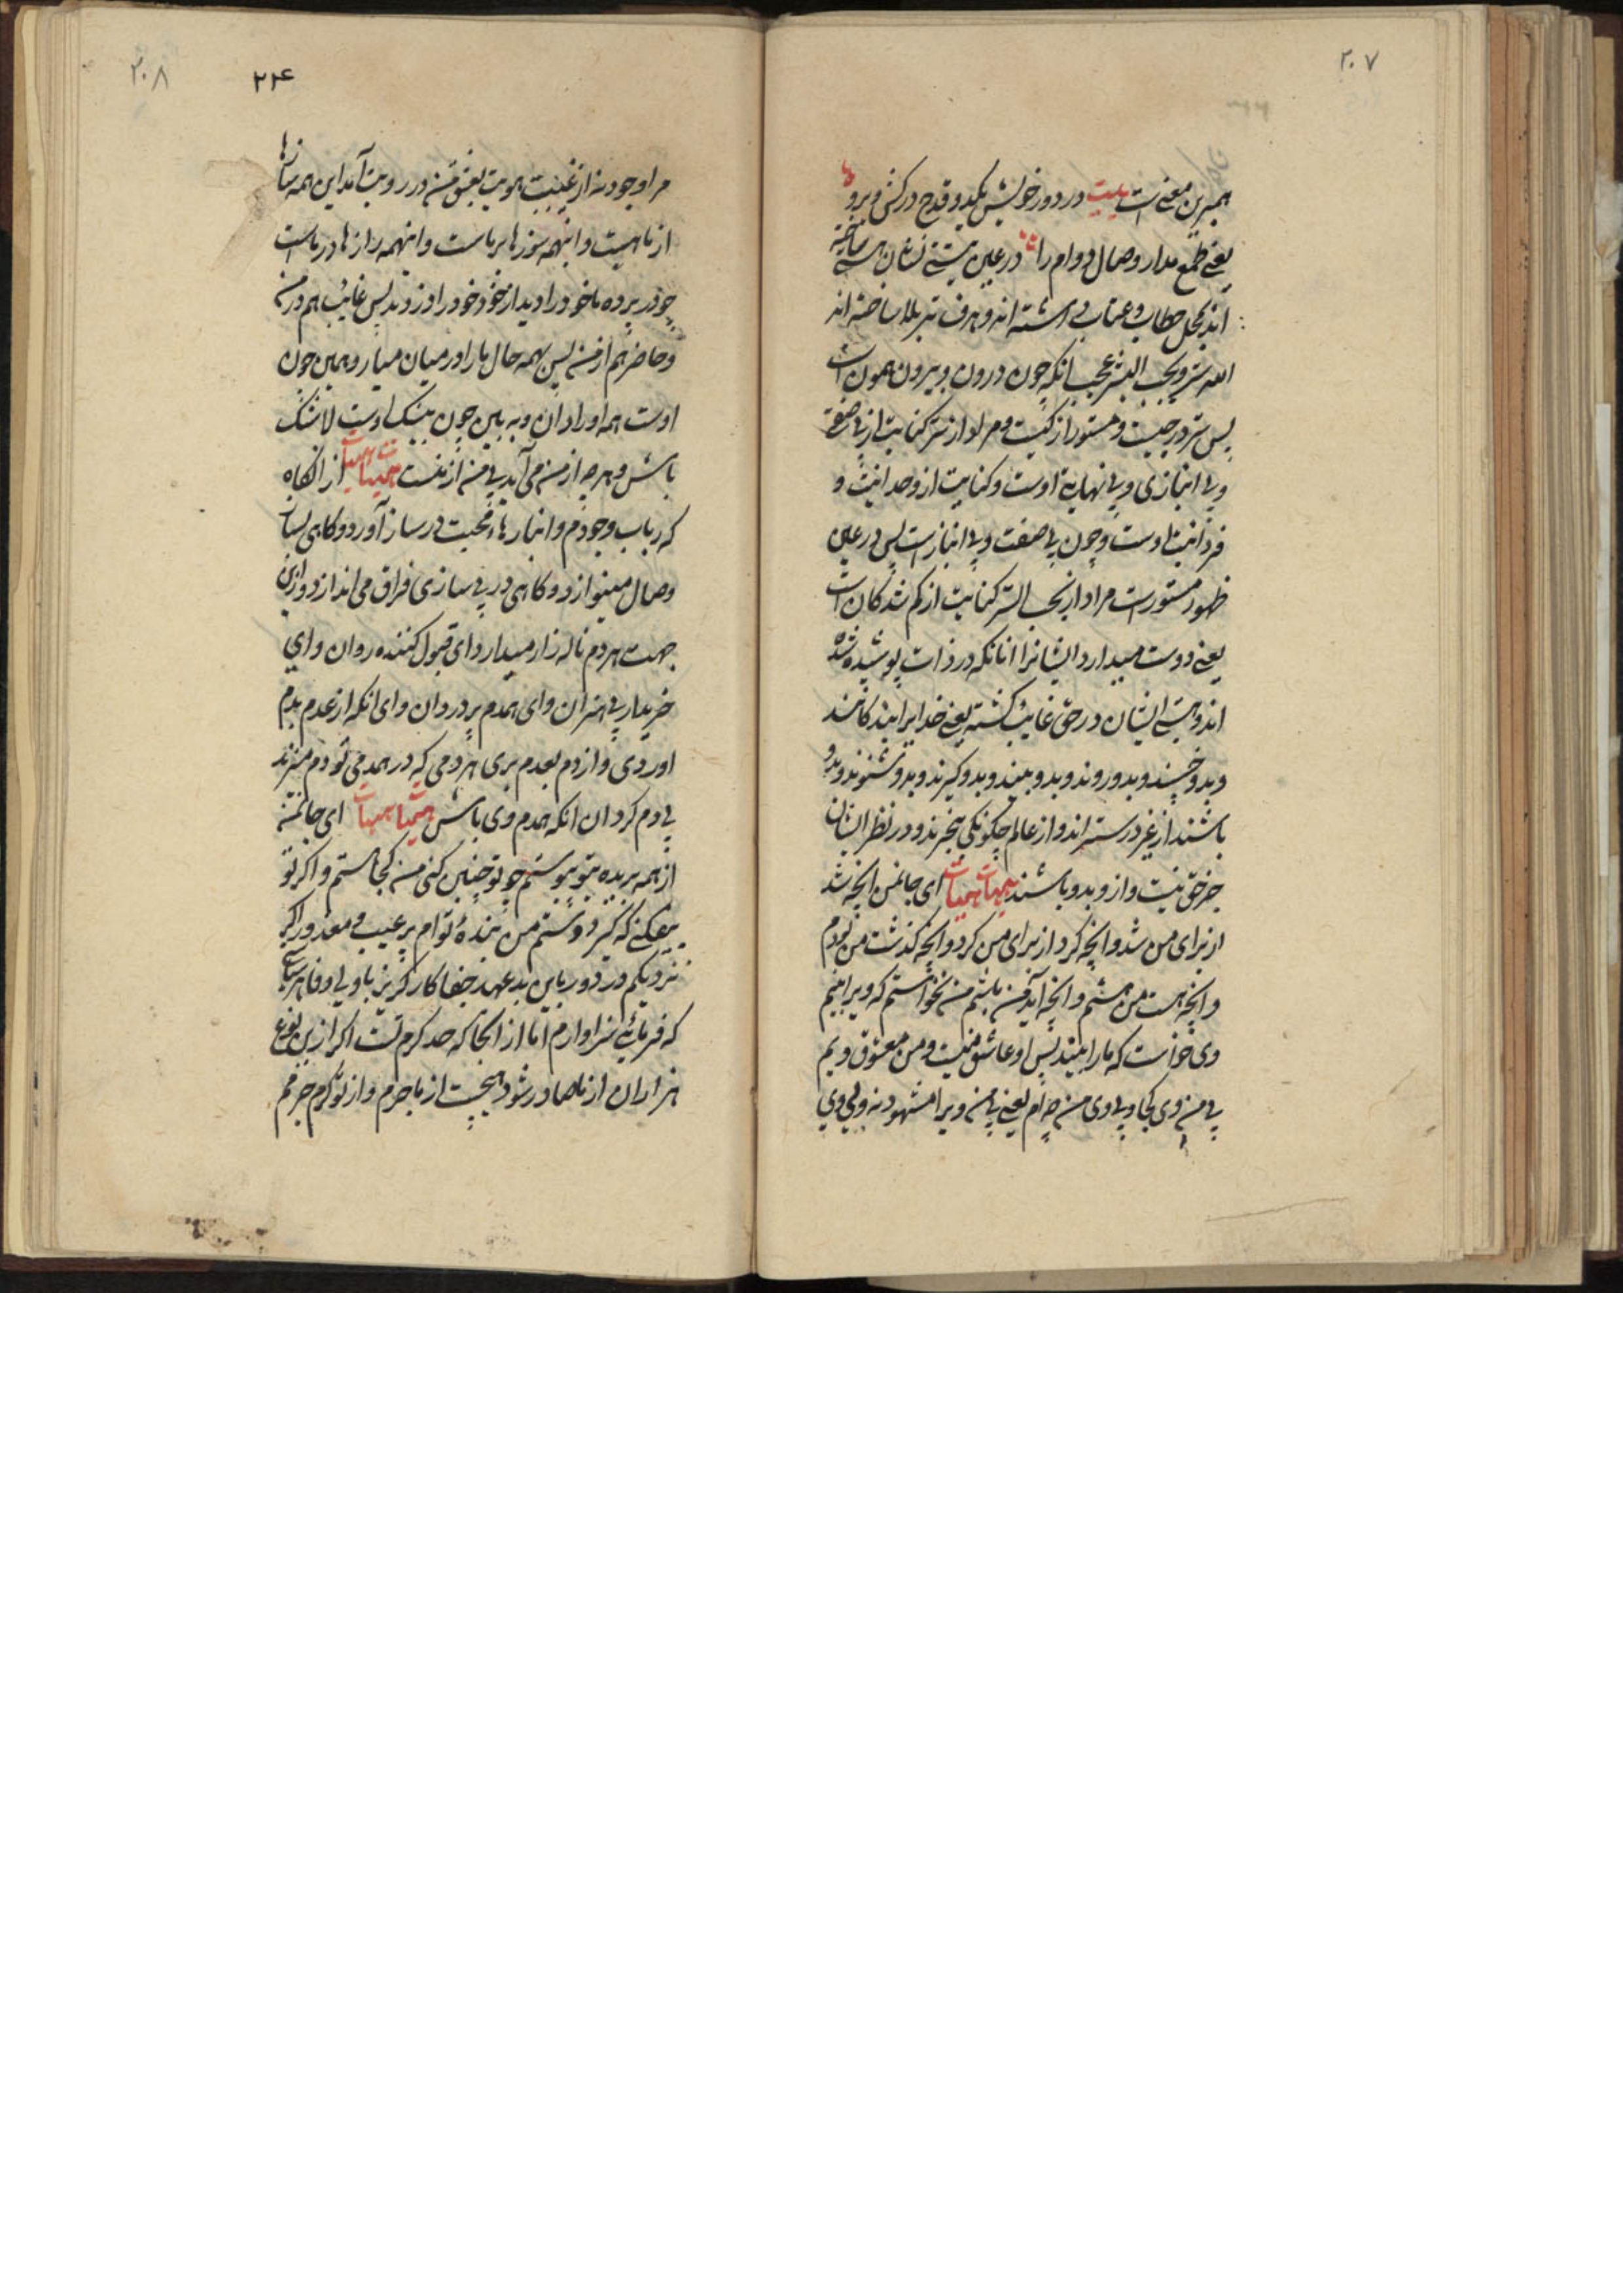 ۲۰۷
همبرین معنی است بیت در دور خویش یکدو قدح درکش و برو
یعنی طمع مدار وصال دوام را در عین هستی نشان ساخته
اند محل خطاب و عتاب داشته اند و هدف تیر بلا ساخته اند
الله ستر و یحب الستر عجب آنکه چون درون و بیرون همون است
پس ستر در چیست و مستور از کیست و مراد از ستر کنایت از بی صفتی
و بی انبازی و بی نهایة اوست و کنایت از وحدانیت و
فردانیت اوست و چون بی صفت و بی انباز است پس در عین
ظهور مستور است مراد از یحب الستر کنایت از گم شدگان است
یعنی دوست میدارد ایشانرا آنانکه در ذات پوشیده شده
اند و هستی ایشان در حق غایب گشته یعنی خدایرا بندگانند
و بدو خسپند و بدو روند و بدو بینند و بدو گیرند و بدو شنوند و بدو
باشند از غیر درسته اند و از عالم چگونگی بیخبرند و در نظر ایشان
جز حق نیست و از و بدو باشند هیهات هیهات ای جانمن انچه شد
از برای من شد و انچه کرد از برای من کرد و انچه گذشت من بودم
و انچه هست من هستم و انچه آید من باشم من نخواستم که ویرا بینم
وی خواست که مارا بیند پس او عاشق منست و من معشوق ویم
بی من وی کجا و بی وی من چه ام یعنی بی من ویرا مشهود نه و بی وی
۲۰۸
۲۲۴
مرا وجود نه از غیبت هویت بعشق من در رویت آمد این همه سازها
از ماهیت و اینهمه سوزها بر ماست و اینهمه رازها در ماست
چو در پرده ما خود را دید از خود خود را دزدید پس غایب هم در من
و حاضر هم از من پس بهمه حال مارا در میان میار و همین چون
اوست همه او را دان و به بین چون بیشک اوست لاشک
باش و هر چه از من می آید بی من از منست هیهات هیهات از انگاه
که رباب وجودم و انبارها محبت در ساز آورد و گاهی بساز
وصال مینوازد و گاهی در بی سازی فراق می اندازد و ازین
جهت هر دم ناله زار میدارد ای قبول کننده روان و ای
خریدار بی هنران و ای همدم پر دردان و ای انکه از عدم بدم
اوردی و از دم بعدم بری هر دمی که در همدمی تو دم میزند
بی دم گردان انکه همدم وی باش هیهات هیهات ای جانمن
از همه بریده بتو پیوستم چو تو چنین کنی من کجا هستم و اگر تو
بیفکنی که گیرد دستم من بنده تو ام پر عیب و معذور اگر
نزدیکم در دور باین بد عهد جفاکار گریزپا و بی وفا هر سیاست
که فرمایی سزاوارم اما از انجا که حد کرم تست اگر ازین نوع
هزاران از ما صادر شود هیچست از ما جرم و از تو کرم جرمم